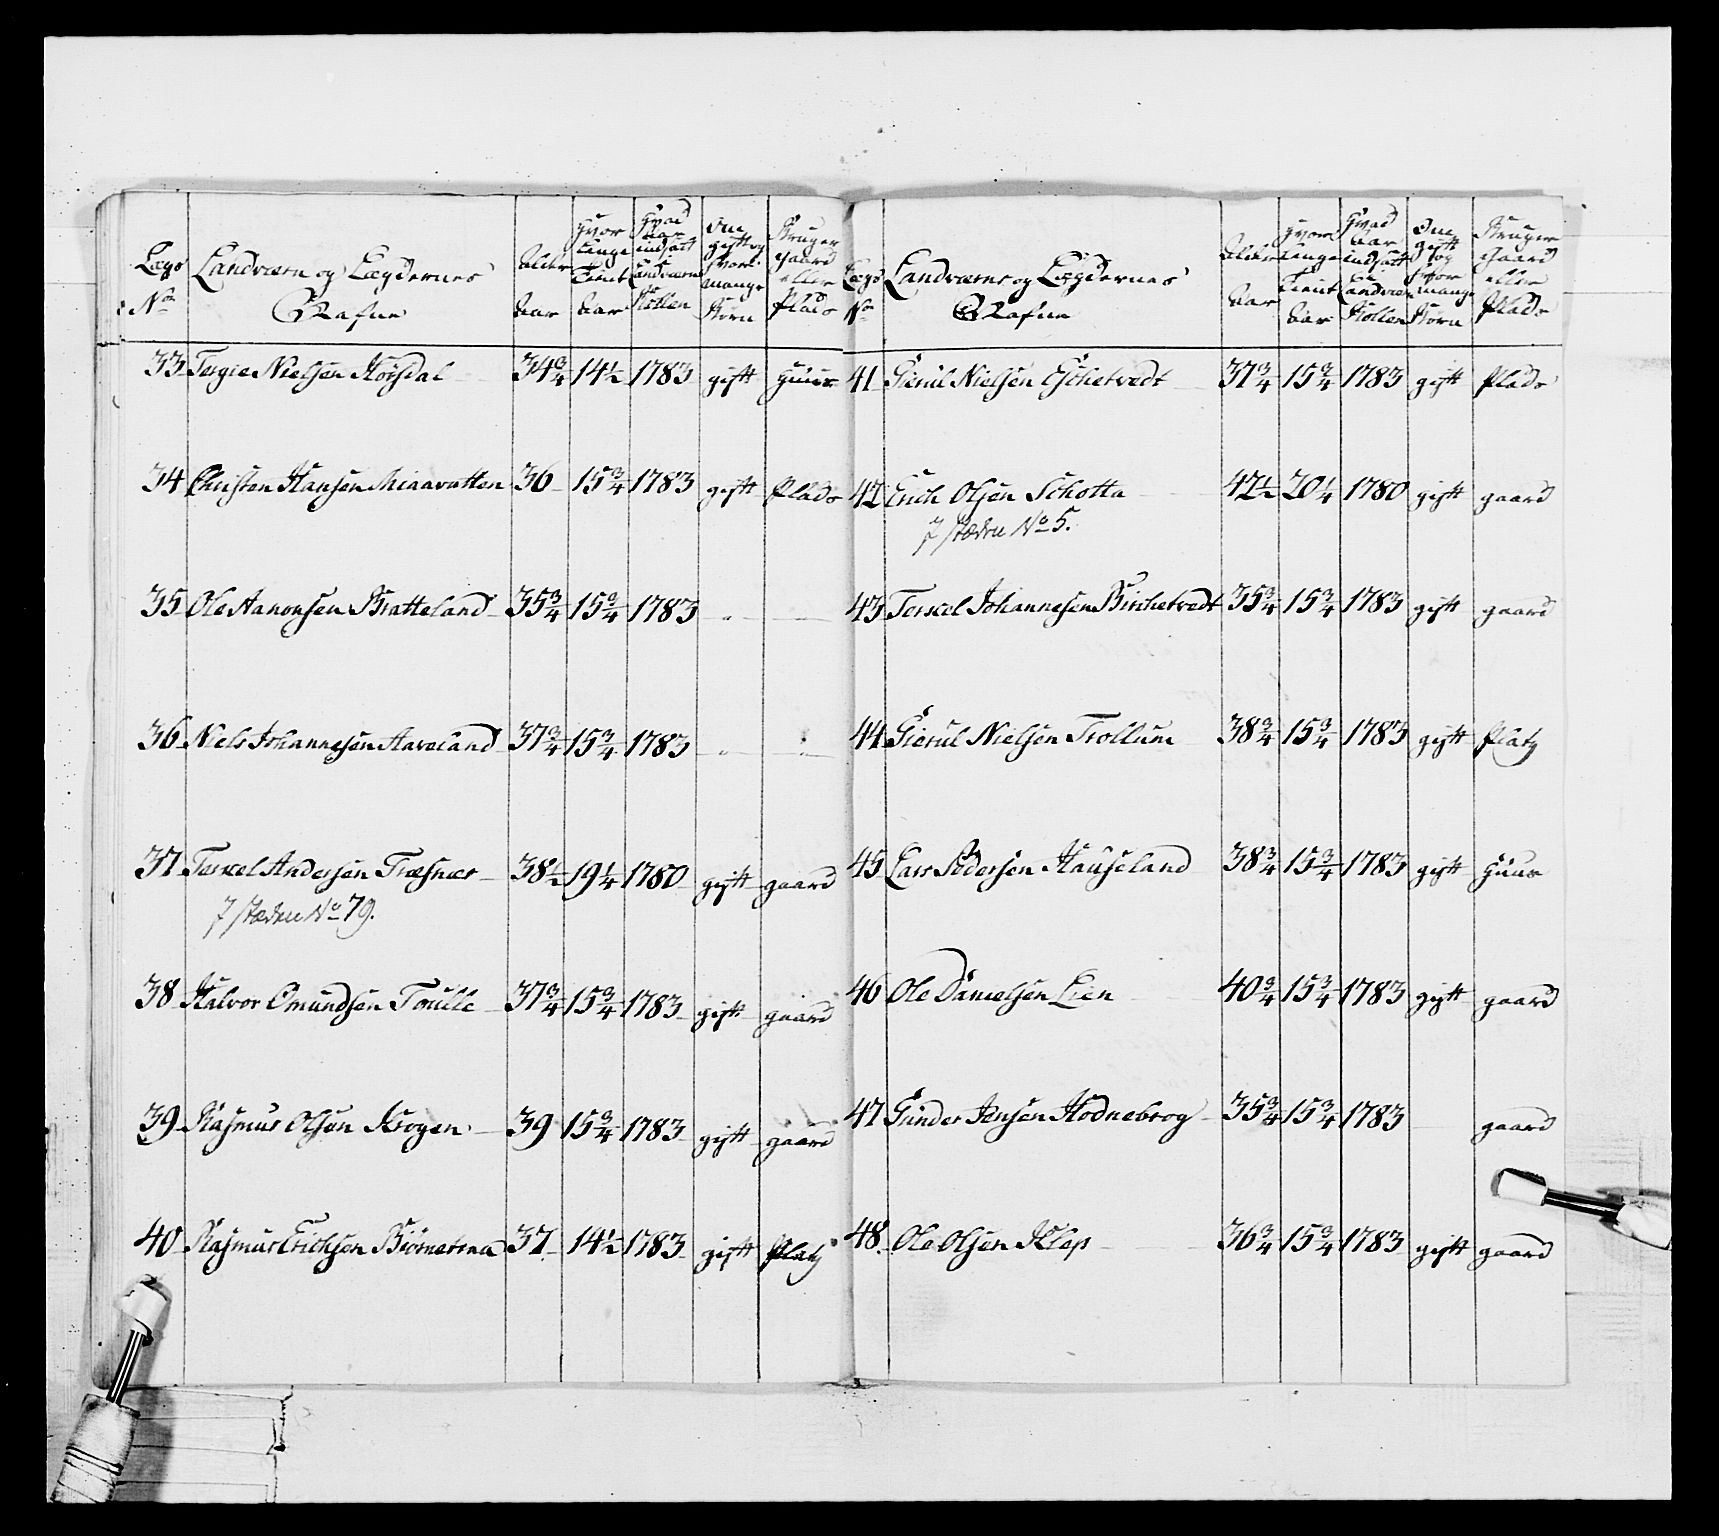 Lægs No Landværn og Lægdernes Nafne Alder Aar Hvor længe tient Aar Hvad Aar indsatt i Landværns Rollen Om gift og hvor mange Børn Bruger gaard eller Plads
33 Tergie Nielsen Høisdal 34 3/4 14 1/2 1783 gift Huus
34 Christen Hansen Miaavatten 36 15 3/4 1783 gift Plads
35 Ole Aanonsen Bratteland 35 3/4 15 3/4 1783 " —
36 Niels Johannesen Aaveland 37 3/4 15 3/4 1783 " —
37 Terkel Andersen Træsnæs 38 1/2 19 1/4 1780 gift gaard
I stæden No 79.
38 Halvor Omundsen 37 3/4 15 3/4 1783 gift gaard
39 Rasmus Olsen Krogen 39 15 3/4 1783 gift gaard
40 Rasmus Erichsen Biørnetræ 37 14 1/2 1783 gift Platz
Lægs No Landværns og Lægdernes Nafne Alder Aar Hvor længe tient Aar Hvad Aar indsatt i Landværn Rollen Om gift og hvor mange Børn Bruger Gaard eller Plads
41 Gierul Nielsen Eschetvedt 37 3/4 15 3/4 1783 gift Plads
42 Erich Olsen Schotta 42 1/2 20 1/4 1780 gift gaard
I stæden No 5.
43 Terkel Johannesen Birchetvedt 35 3/4 15 3/4 1783 gift gaard
44 Gierul Nielsen Trollum 38 3/4 15 3/4 1783 gift Platz
45 Lars Pedersen Hauseland 38 3/4 15 3/4 1783 gift Huus
46 Ole Danielsen Lien 40 3/4 15 3/4 1783 gift gaard
47 Gunder Jensen Hodnebrog 35 3/4 15 3/4 1783 gaard
48 Ole Olsen Klep 36 3/4 15 3/4 1783 gift gaard